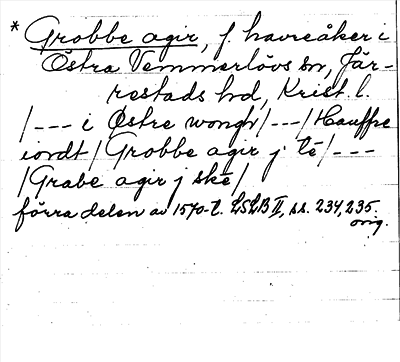 * Grobbe agir, f. havreåker i
Östra Vemmerlövs sn, Jär-
restads hd, Krist. l.
/--- i Østre wongr/---/Hauffre
iordt/Grobbe agir j tē/---
/Grabe agir j skē/
förra delen av 1570-t. LSLB II, ss. 234, 235.
orig.